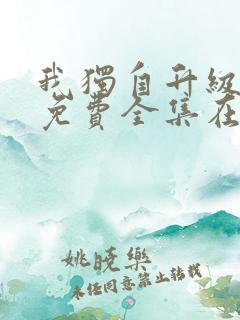 我獨自升級
免費全集在
姚曉樂
未任同意禁止轉載